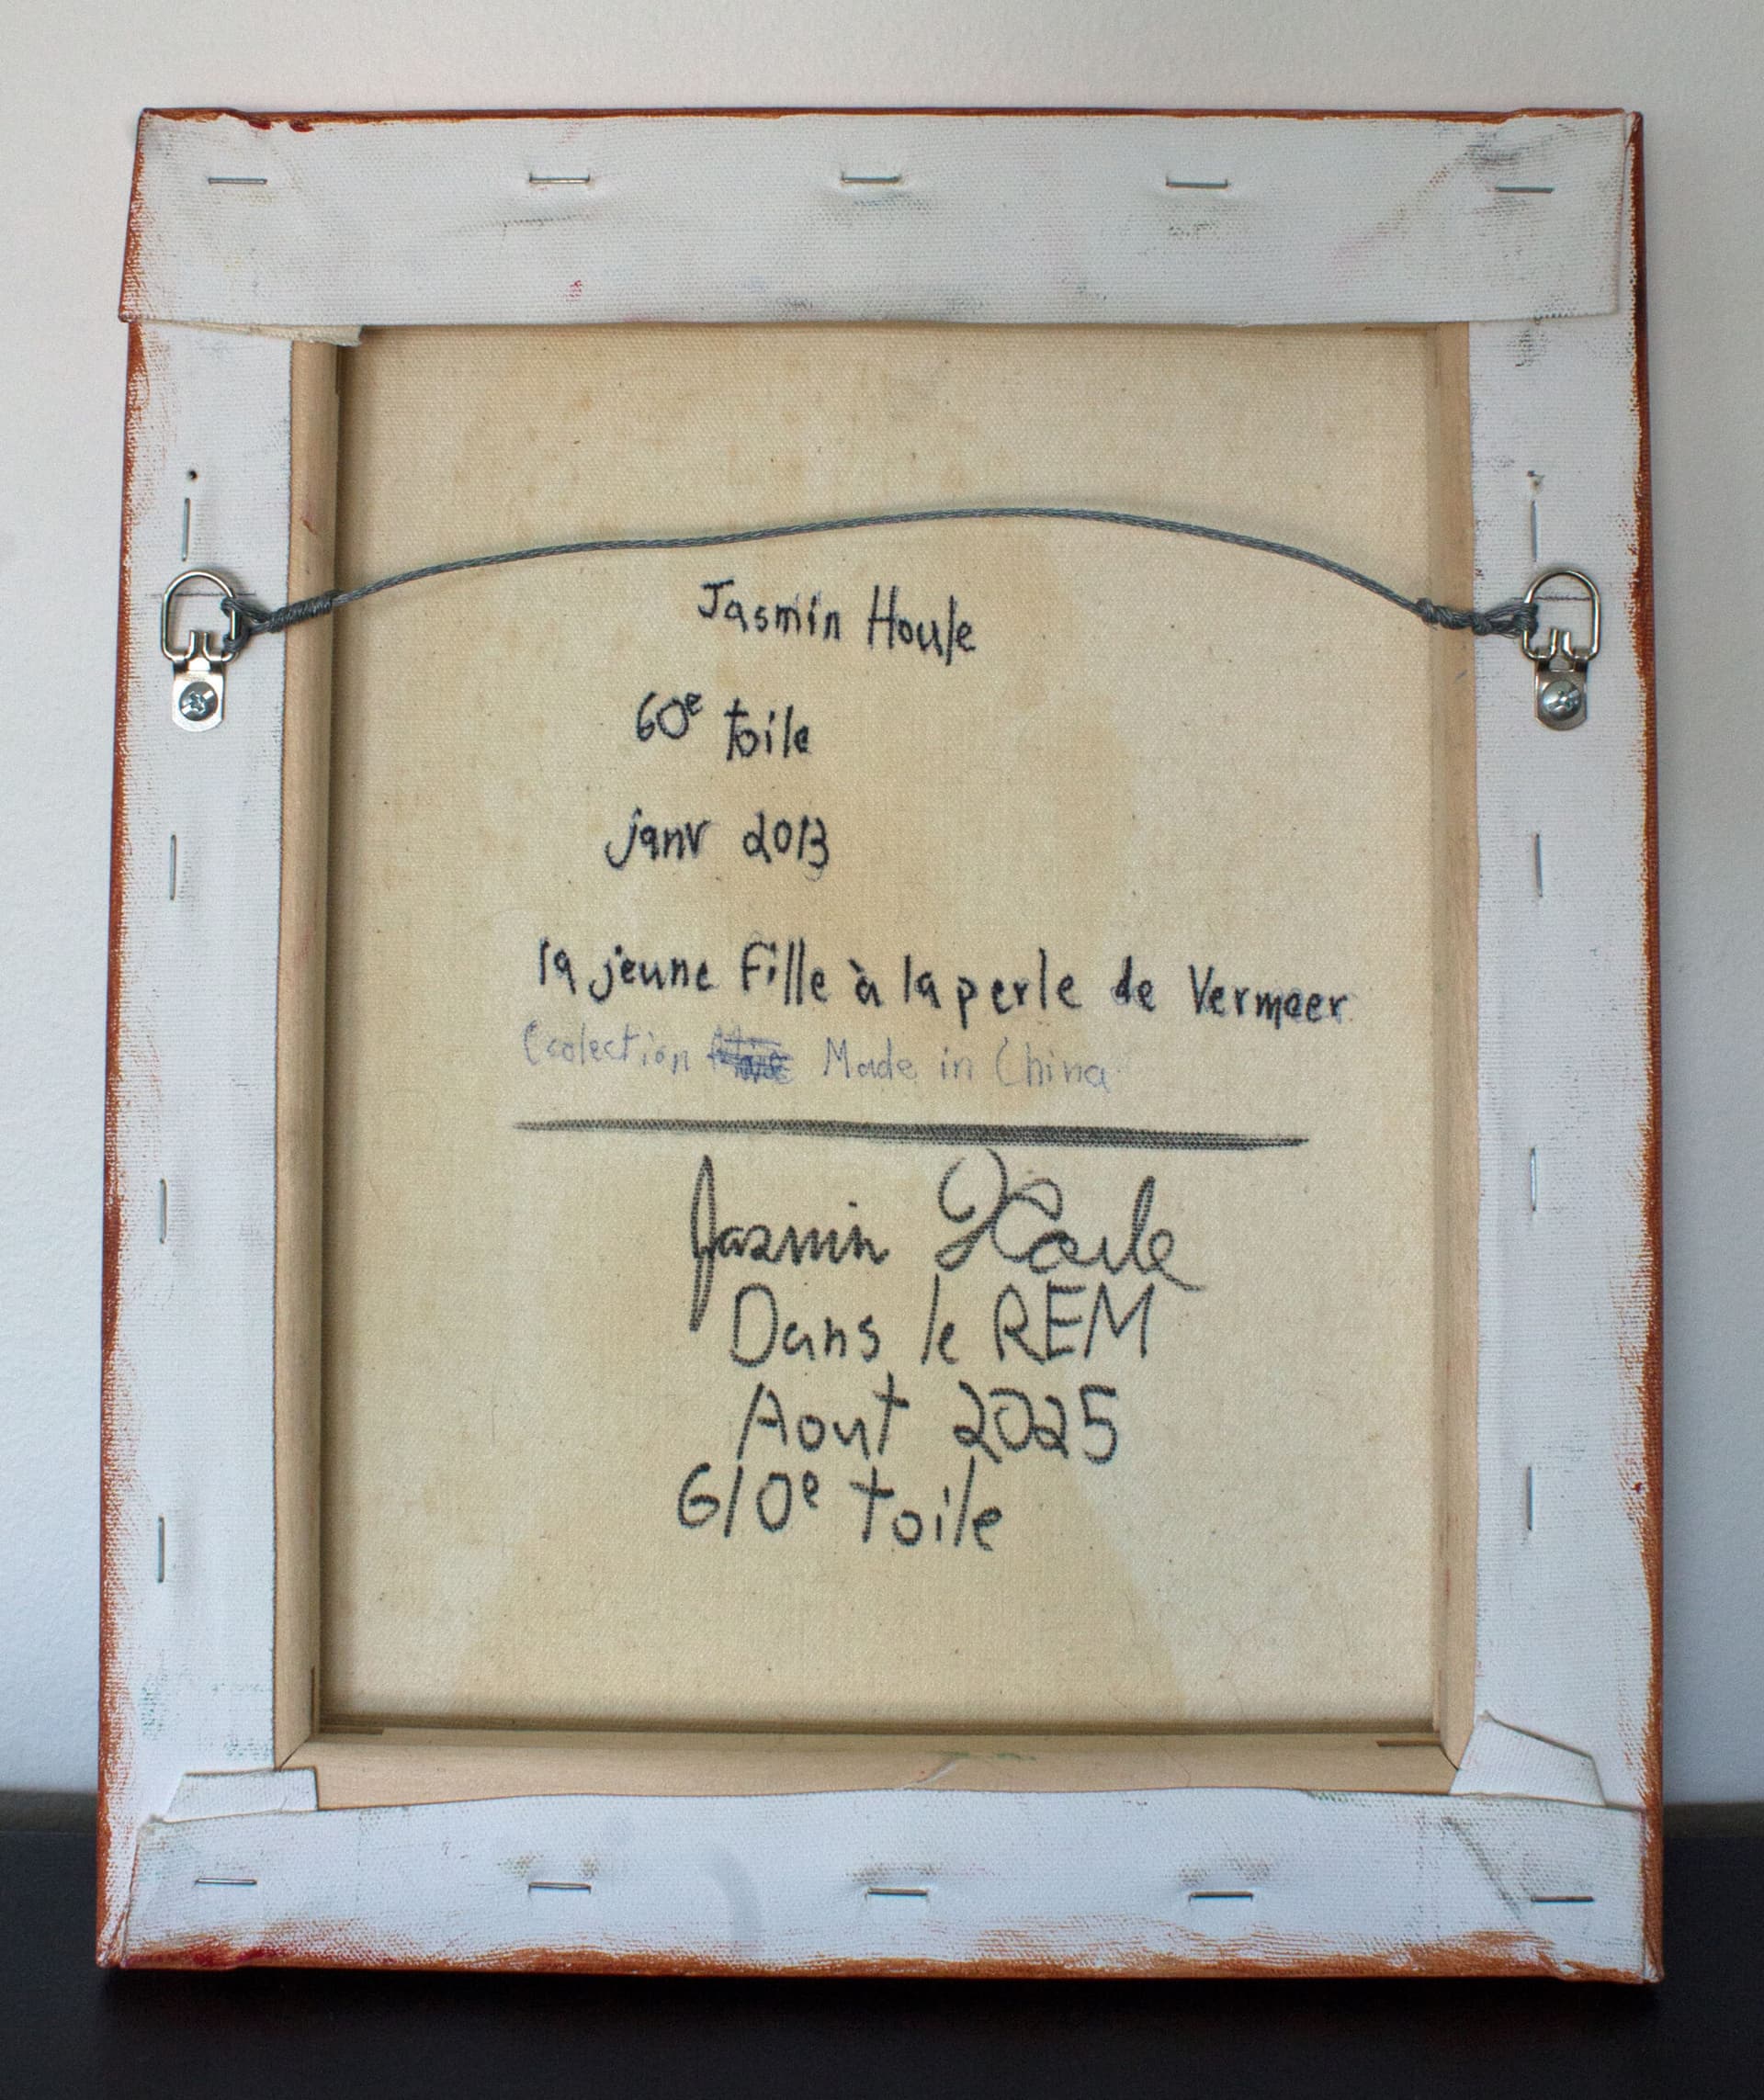 Jasmin Houle
60e toile
janv 2013
la jeune fille à la perle de Vermeer
Colection Made in China
Jasmin Houle
Dans le REM
Aout 2025
610e toile